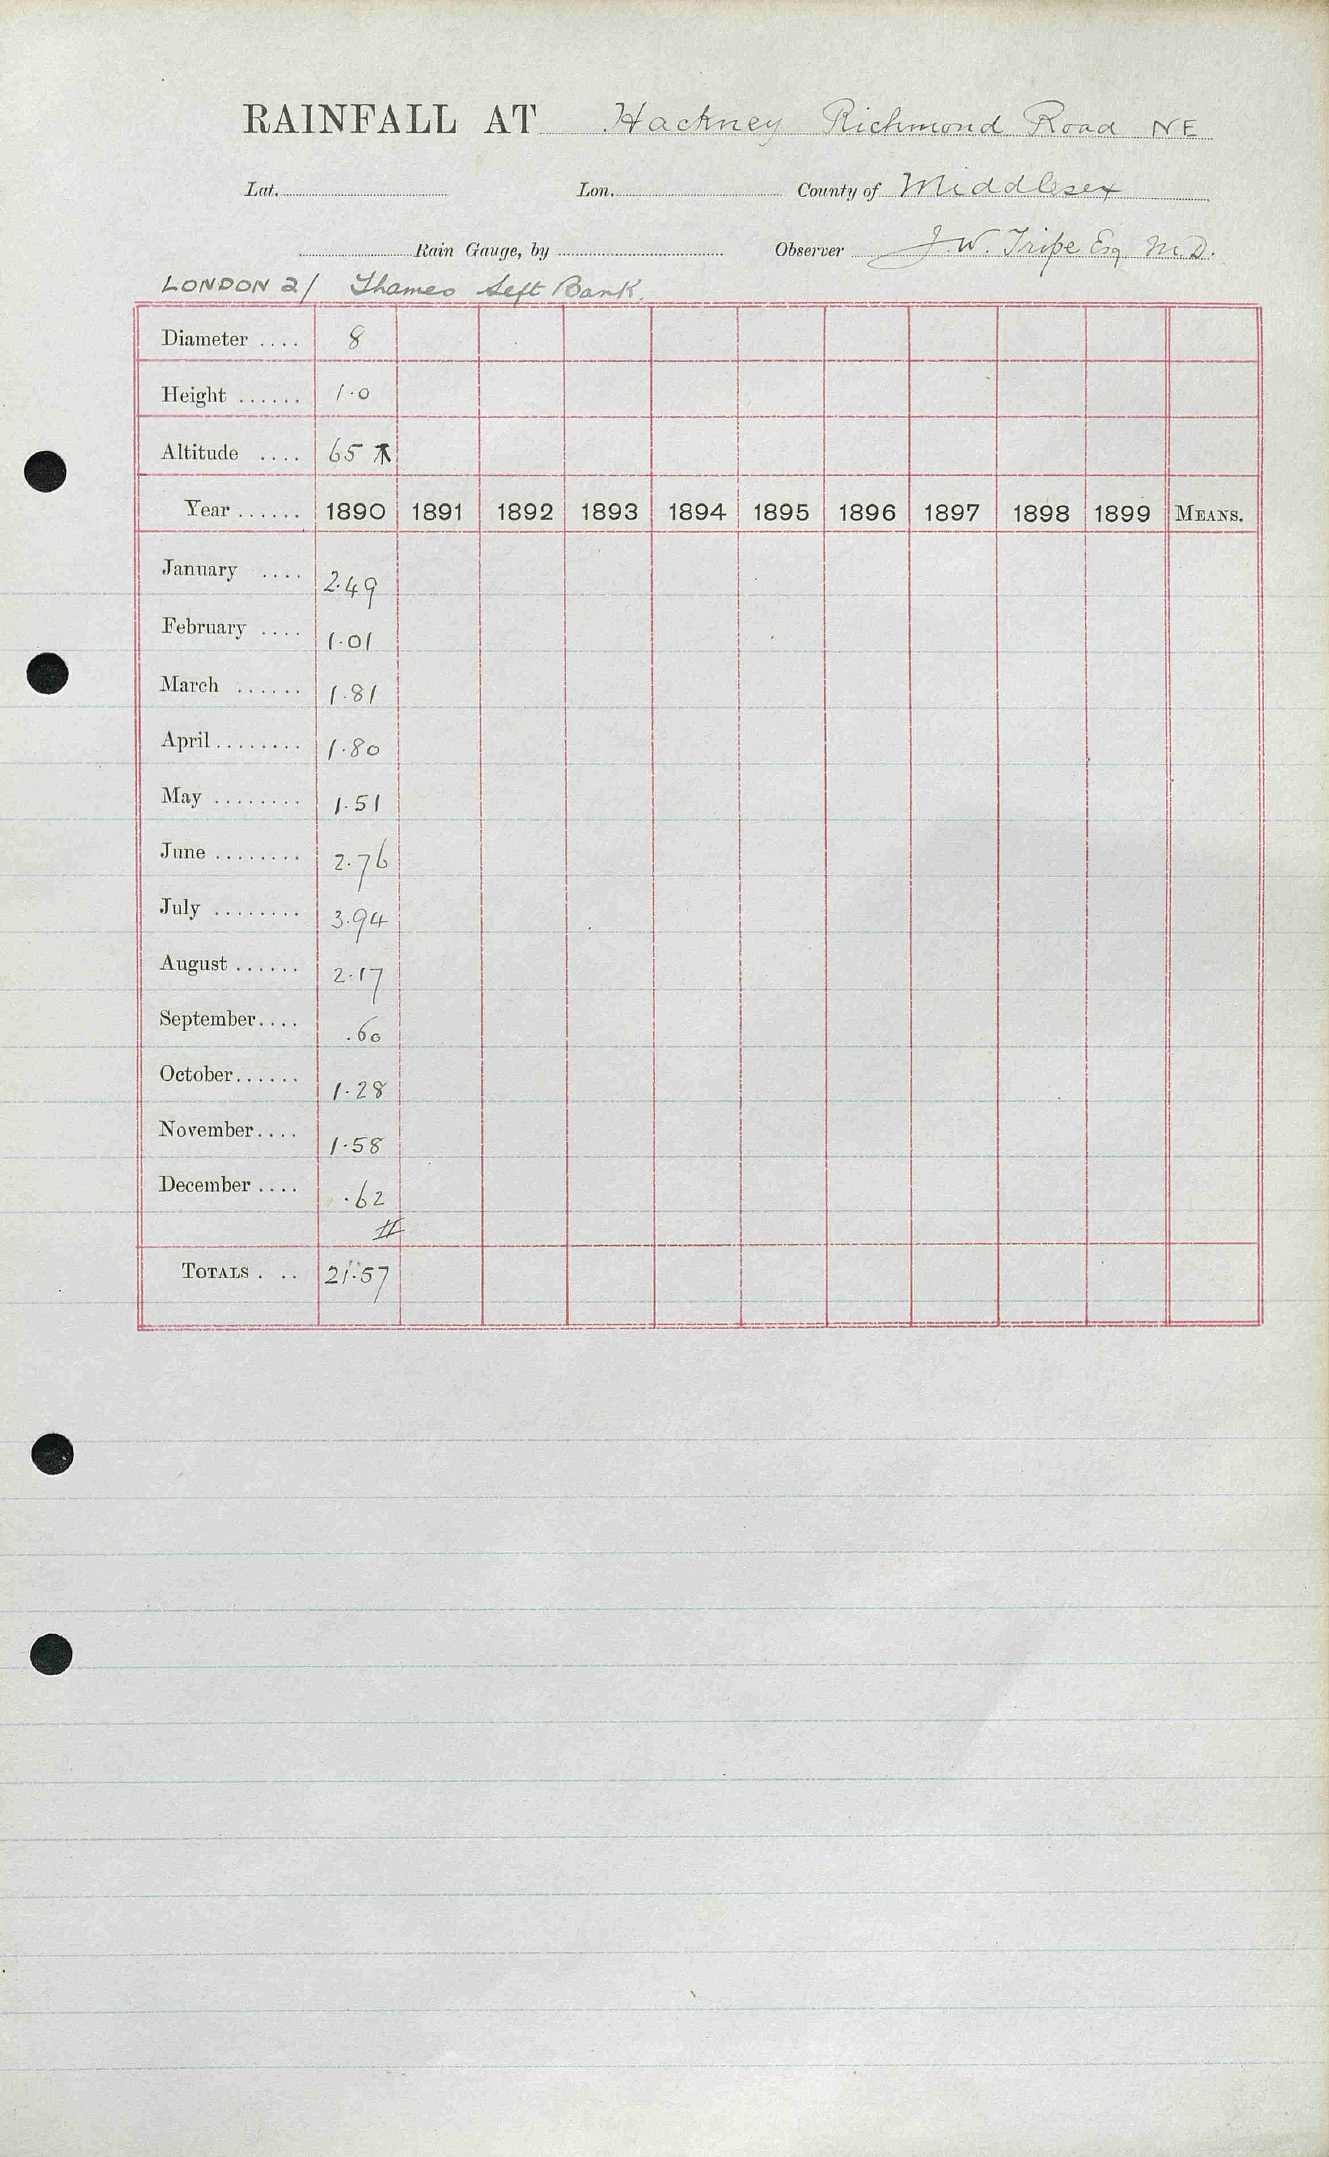 RAINFALL AT Hackney Richmond Road NE
Lat. Lon. County of Middlesex
Rain Gauge, by Observer J. W. Tripe Esq M.D.
LONDON 2/ Thames Left Bank.
Diameter .... 8
Height ...... 1.0
Altitude .... 65
Year ...... 1890 1891 1892 1893 1894 1895 1896 1897 1898 1899 MEANS.
January .... 2.49
February .... 1.01
March ...... 1.81
April ........ 1.80
May ........ 1.51
June ........ 2.76
July ........ 3.94
August ...... 2.17
September .... .60
October ...... 1.28
November .... 1.58
December .... .62
TOTALS . .. 21.57